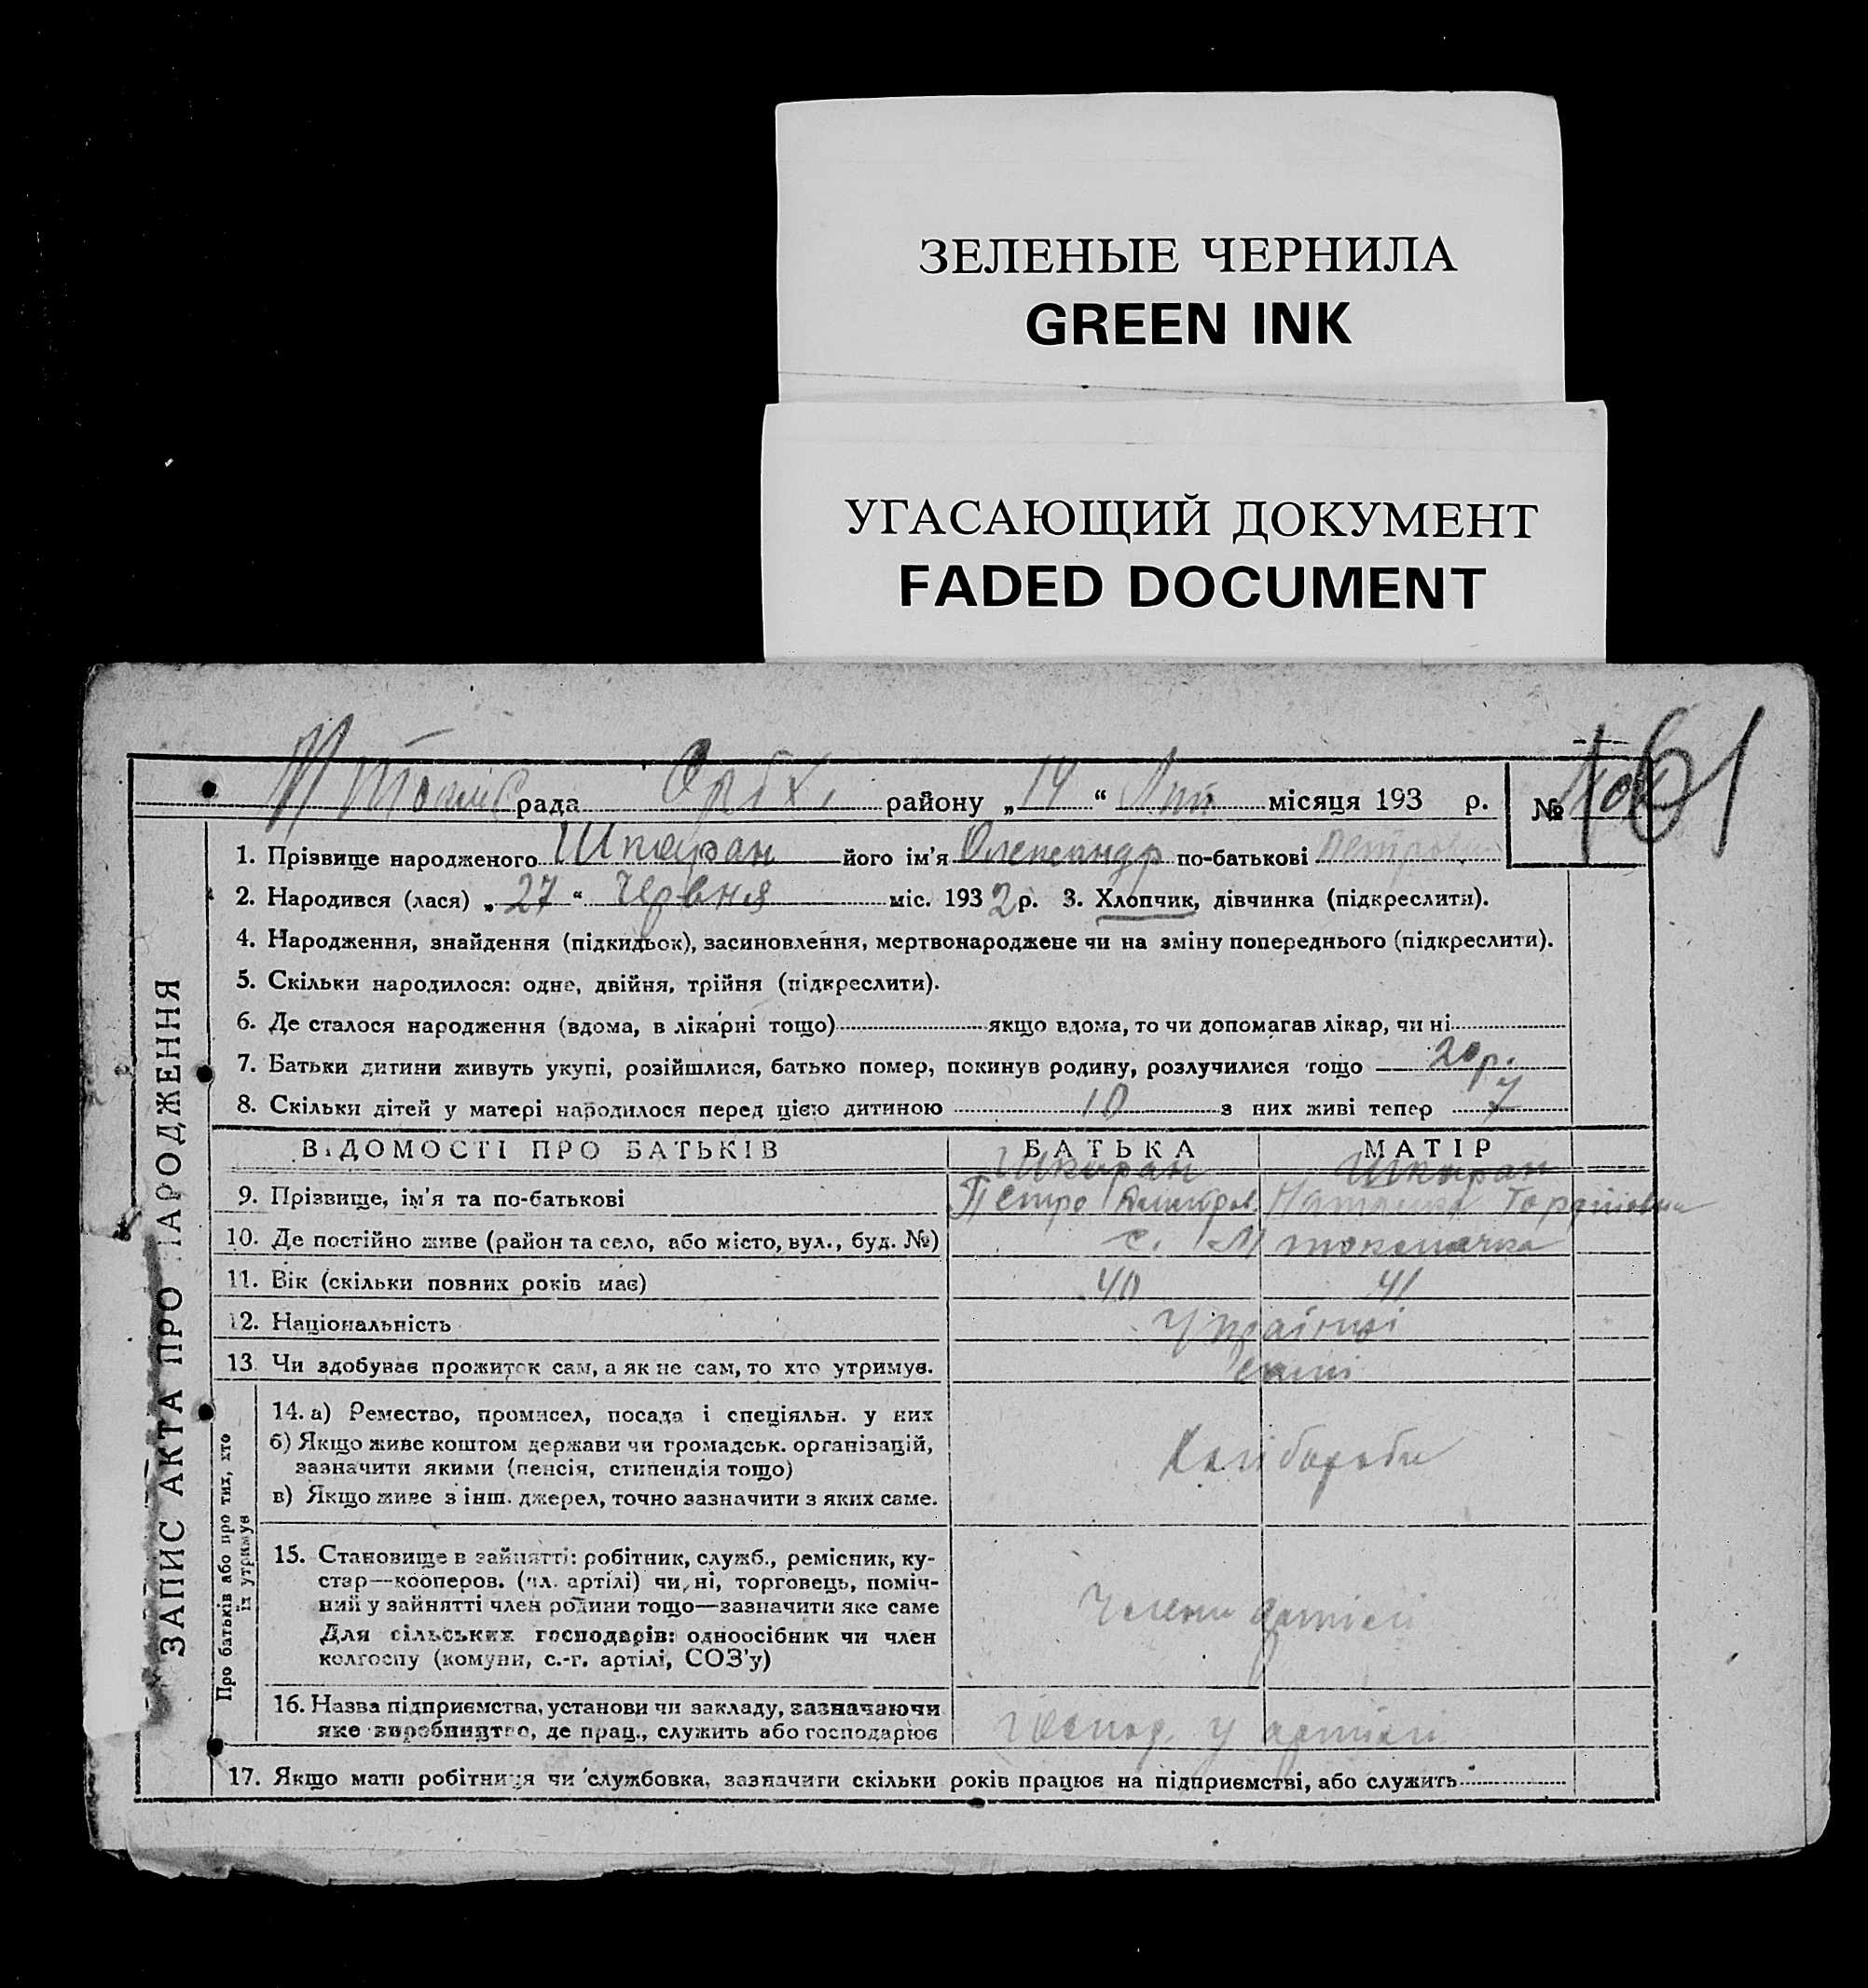 ЗЕЛЕНЫЕ ЧЕРНИЛА
GREEN INK
УГАСАЮЩИЙ ДОКУМЕНТ
FADED DOCUMENT
161
рада Орбх. району „14“ Лип місяця 193 р. №
1. Прізвище народженого Шкаран його ім'я Олександр по-батькові Петрович
2. Народився (лася) „27“ Червня міс. 1932 р. 3. Хлопчик, дівчинка (підкреслити).
4. Народження, знайдення (підкидьок), засиновлення, мертвонароджене чи на зміну попереднього (підкреслити).
5. Скільки народилося: одне, двійня, трійня (підкреслити).
6. Де сталося народження (вдома, в лікарні тощо) якщо вдома, то чи допомагав лікар, чи ні
7. Батьки дитини живуть укупі, розійшлися, батько помер, покинув родину, розлучилися тощо 20 р.
8. Скільки дітей у матері народилося перед цією дитиною 10 з них живі тепер 7
ВІДОМОСТІ ПРО БАТЬКІВ БАТЬКА МАТІР
Шкаран Шкаран
9. Прізвище, ім'я та по-батькові Петро
10. Де постійно живе (район та село, або місто, вул., буд. №) с. М токмачка
11. Вік (скільки повних років має) 40 41
12. Національність Українці
13. Чи здобував прожиток сам, а як не сам, то хто утримув. самі
14. а) Ремество, промисел, посада і спеціяльн. у них
б) Якщо живе коштом держави чи громадськ. організацій,
зазначити якими (пенсія, стипендія тощо)
в) Якщо живе з інш. джерел, точно зазначити з яких саме.
Хліборобы
15. Становище в зайнятті: робітник, служб., ремісник, ку-
стар—кооперов. (чл. артілі) чи ні, торговець, поміч-
ний у зайнятті член родини тощо—зазначити яке саме
Для сільських господарів: одноосібник чи член
колгоспу (комуни, с.-г. артілі, СОЗ'у)
Члени артілі
16. Назва підприємства, установи чи закладу, зазначаючи
яке виробництво, де прац., служить або господарює
Господ. у артілі
17. Якщо мати робітниця чи службовка, зазначити скільки років працює на підприємстві, або служить
ЗАПИС АКТА ПРО НАРОДЖЕННЯ
Про батьків або про тих, хто
їх утримує